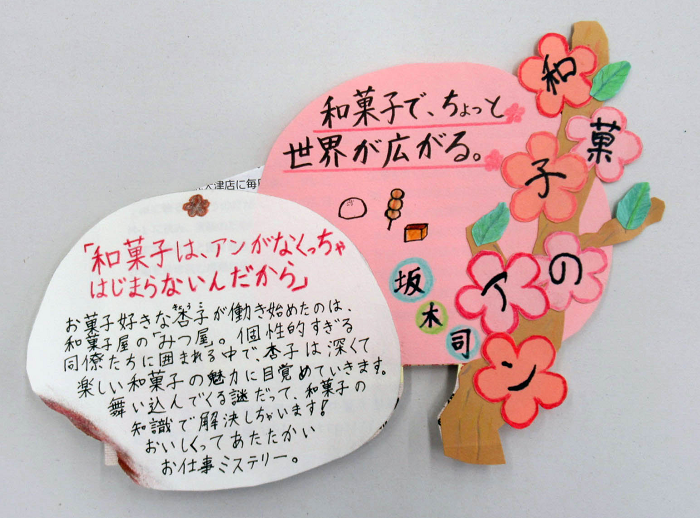 和菓子のアン
和菓子で、ちょっと
世界が広がる。
坂木司
大津店に毎
「和菓子は、アンがなくっちゃ
はじまらないんだから」
きょうこ
お菓子好きな杏子が働き始めたのは、
和菓子屋の"みつ屋"。個性的すぎる
同僚たちに囲まれる中で、杏子は深くて
楽しい和菓子の魅力に目覚めていきます。
舞い込んでくる謎だって、和菓子の
知識で解決しちゃいます!
おいしくってあたたかい
お仕事ミステリー。